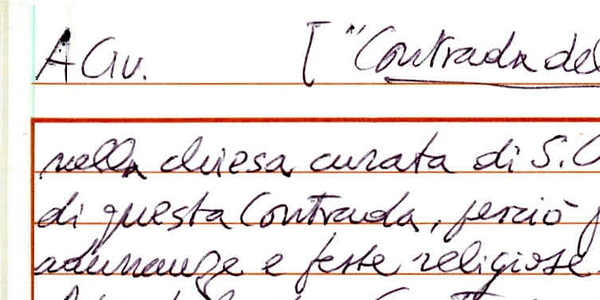 A Giv. ["Contrada del
nella chiesa curata di S. G
di questa Contrada, perciò p
adunanze e feste religiose